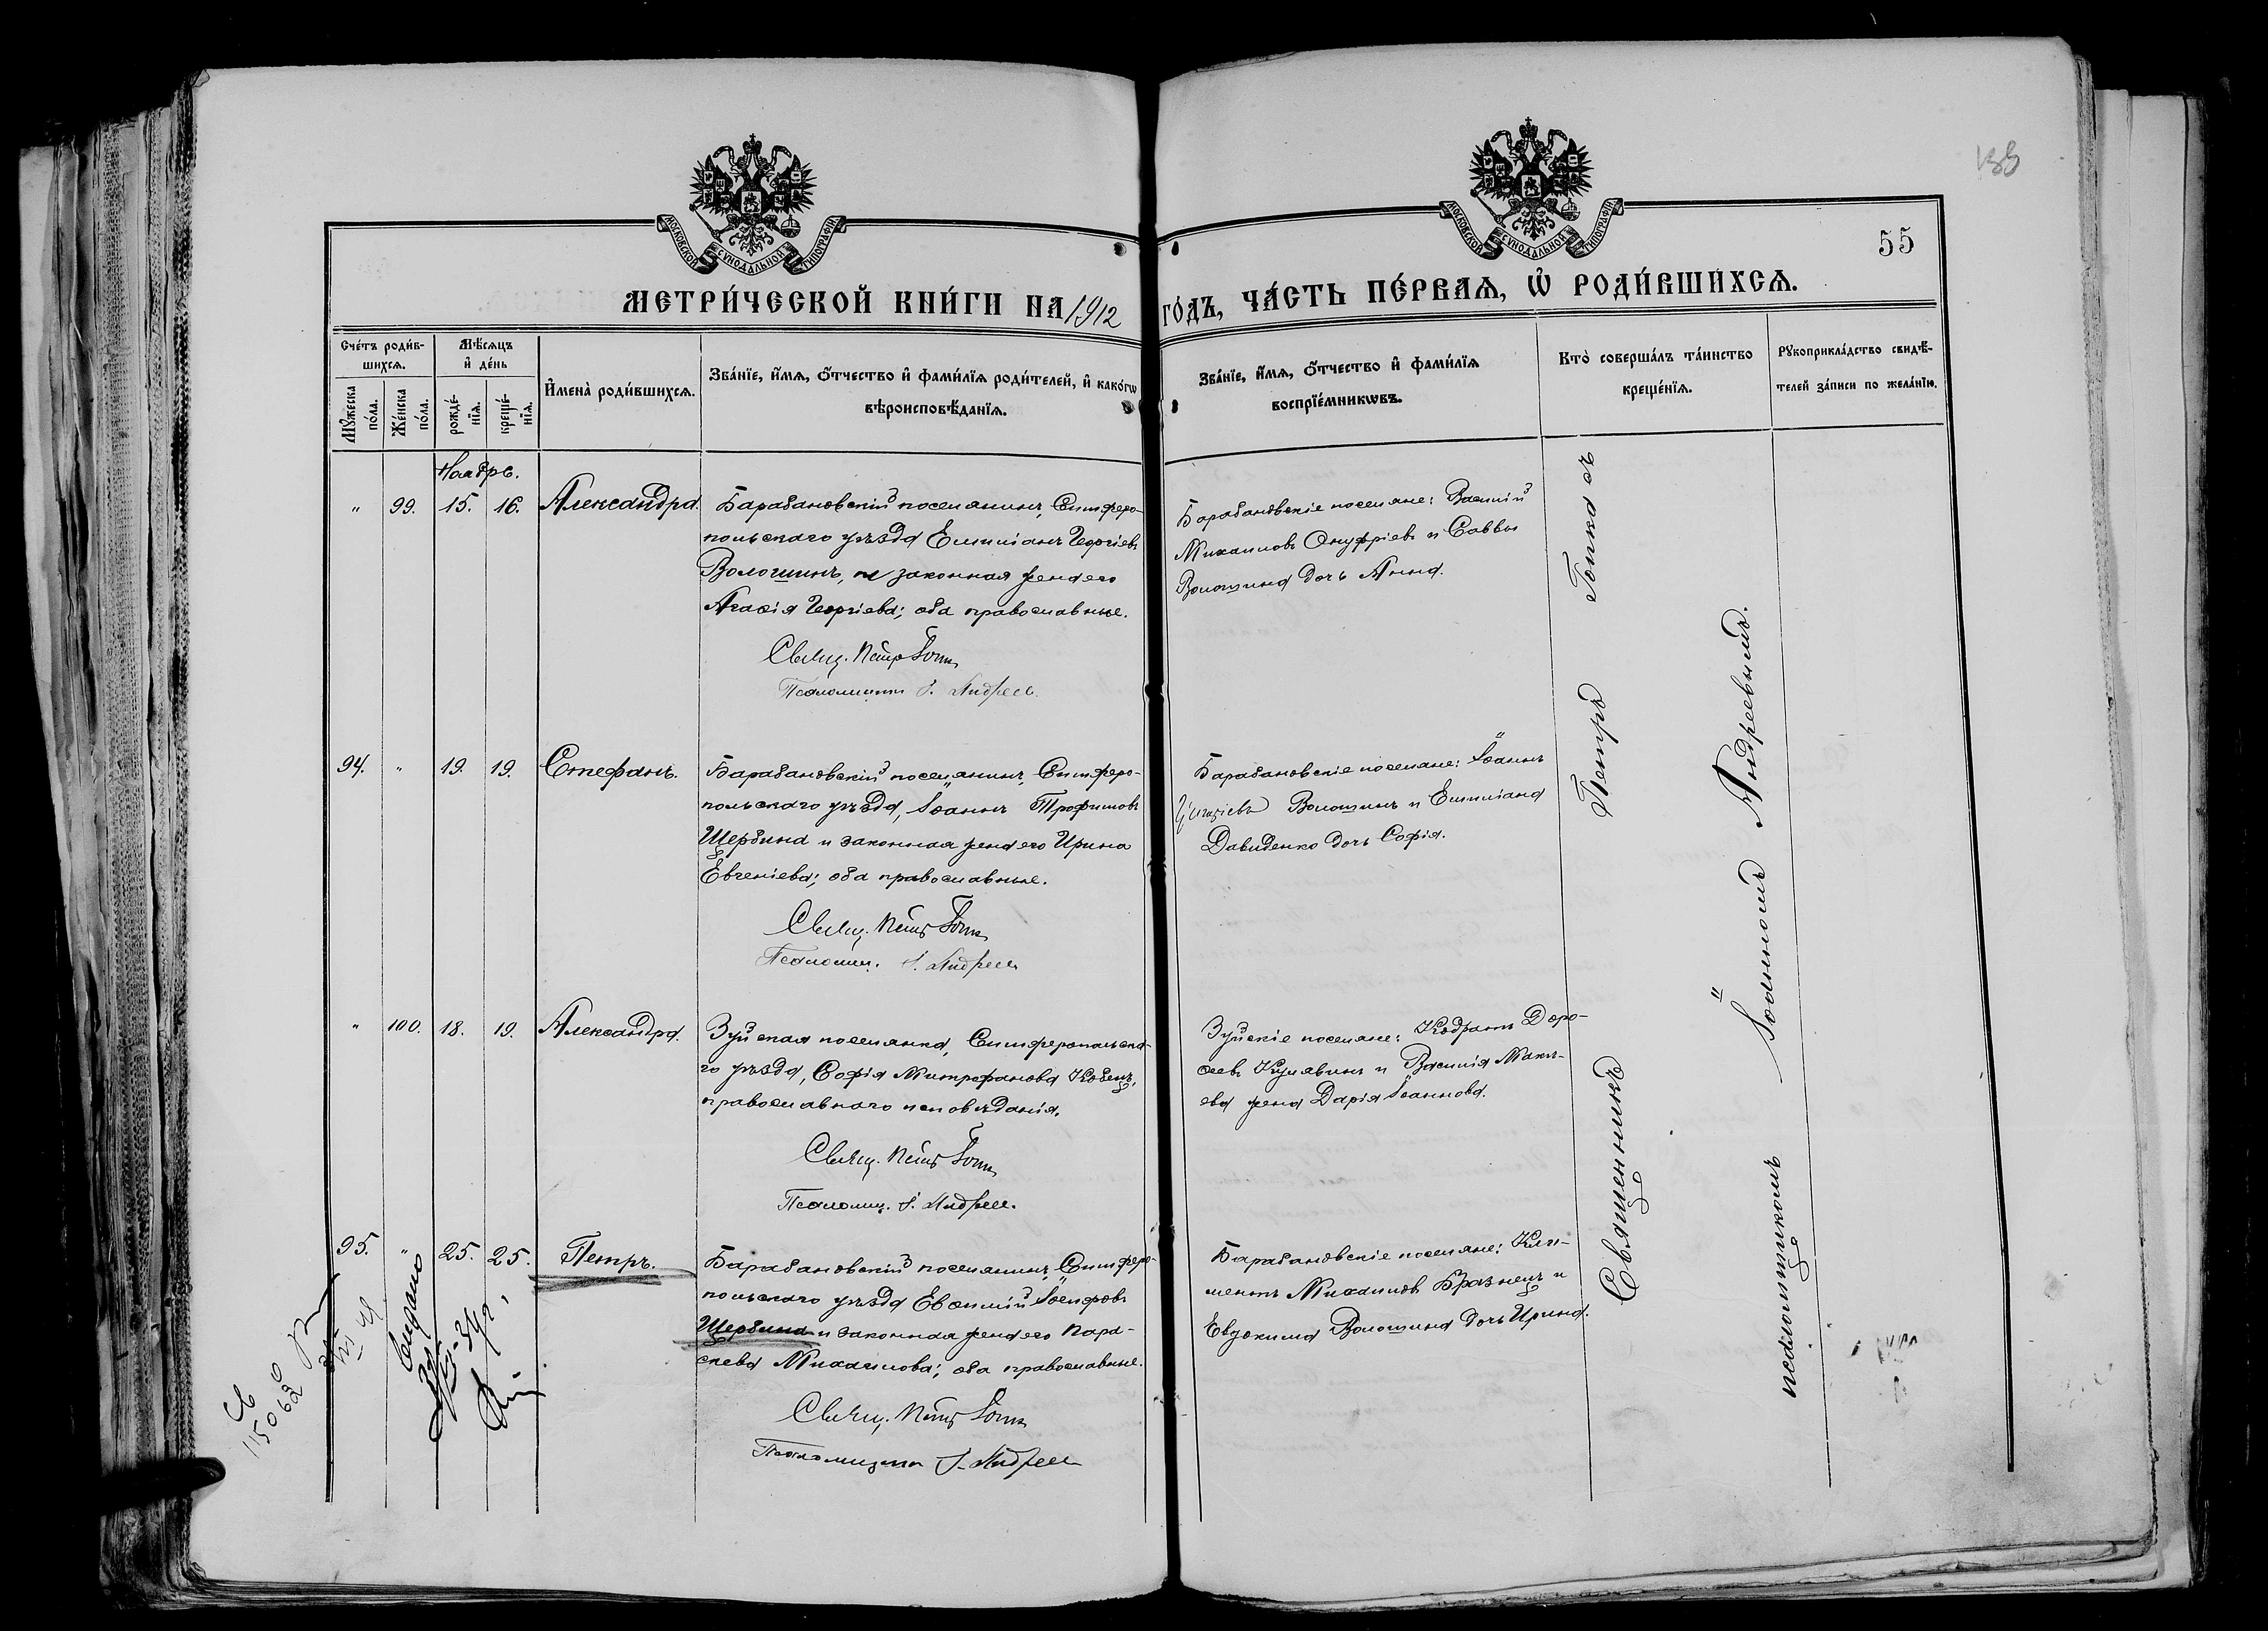 МОСКОВСКОЙ СУНОДАЛЬНОЙ ТИПОГРАФІИ
МОСКОВСКОЙ СУНОДАЛЬНОЙ ТИПОГРАФІИ
55
МЕТРИ́ЧЕСКОЙ КНИ́ГИ НА 1912 ГО́ДЪ, ЧА́СТЬ ПЕ́РВАѦ, Ѡ҆ РОДИ́ВШИХСѦ.
Сче́тъ роди́в-
шихсѧ.
Мꙋ́жеска по́ла.
Же́нска по́ла.
Мѣ́сѧцъ
и҆ де́нь
рожде́-
нїѧ.
креще́-
нїѧ.
И҆мена̀ роди́вшихсѧ.
Зва́нїе, и҆́мѧ, ѻ҆́тчество и҆ фами́лїѧ роди́телей, и҆ како́гѡ
вѣроисповѣ́данїѧ.
Зва́нїе, и҆́мѧ, ѻ҆́тчество и҆ фами́лїѧ
воспрїе́мникѡвъ.
Кто̀ соверша́лъ та́инство
креще́нїѧ.
Рꙋкоприкла́дство свидѣ́-
телей за́писи по жела́нїю.
Ноябрь.
" 99. 15. 16. Александра.
Барабановскій поселянинъ, Симферо-
польскаго уѣзда Емиліанъ Георгіевъ
Волошинъ, и законная жена его
Агафія Георгіева; оба православные.
Свящ. Петръ
Псаломщикъ І. Андреев.
Барабановскіе поселяне: Василій
Михаиловъ Онуфріевъ и Саввы
Волошина дочь Анна.
94. " 19. 19. Стефанъ.
Барабановскій поселянинъ, Симферо-
польскаго уѣзда, Іоаннъ Трофимовъ
Щербина и законная жена его Ирина
Евгеніева; оба православные.
Свящ. Петръ
Псаломщ. І. Андреев
Барабановскіе поселяне: Іоаннъ
Волошинъ и Емиліана
Давиденко дочь Софія.
" 100. 18. 19. Александра.
Зуйская поселянка, Симферопольска-
го уѣзда, Софія Митрофанова Кобецъ,
православнаго исповѣданія.
Свящ. Петръ
Псаломщ. І. Андреев.
Зуйскіе поселяне: Кодратъ Доро-
феевъ Кулявинъ и Василія Макѣ-
ева жена Дарія Іоаннова.
95. " 25. 25. Петръ.
Барабановскій поселянинъ, Симферо-
польскаго уѣзда Евфимій Іосифовъ
Щербина и законная жена его Пара-
скева Михаилова; оба православные.
Свящ. Петръ
Псаломщикъ І. Андреев
Барабановскіе поселяне: Кли-
ментъ Михаиловъ Бразнецъ и
Евдокима Волошина дочь Ирина.
Священникъ Петръ
съ
псаломщикомъ Іоанномъ Андреевымъ.